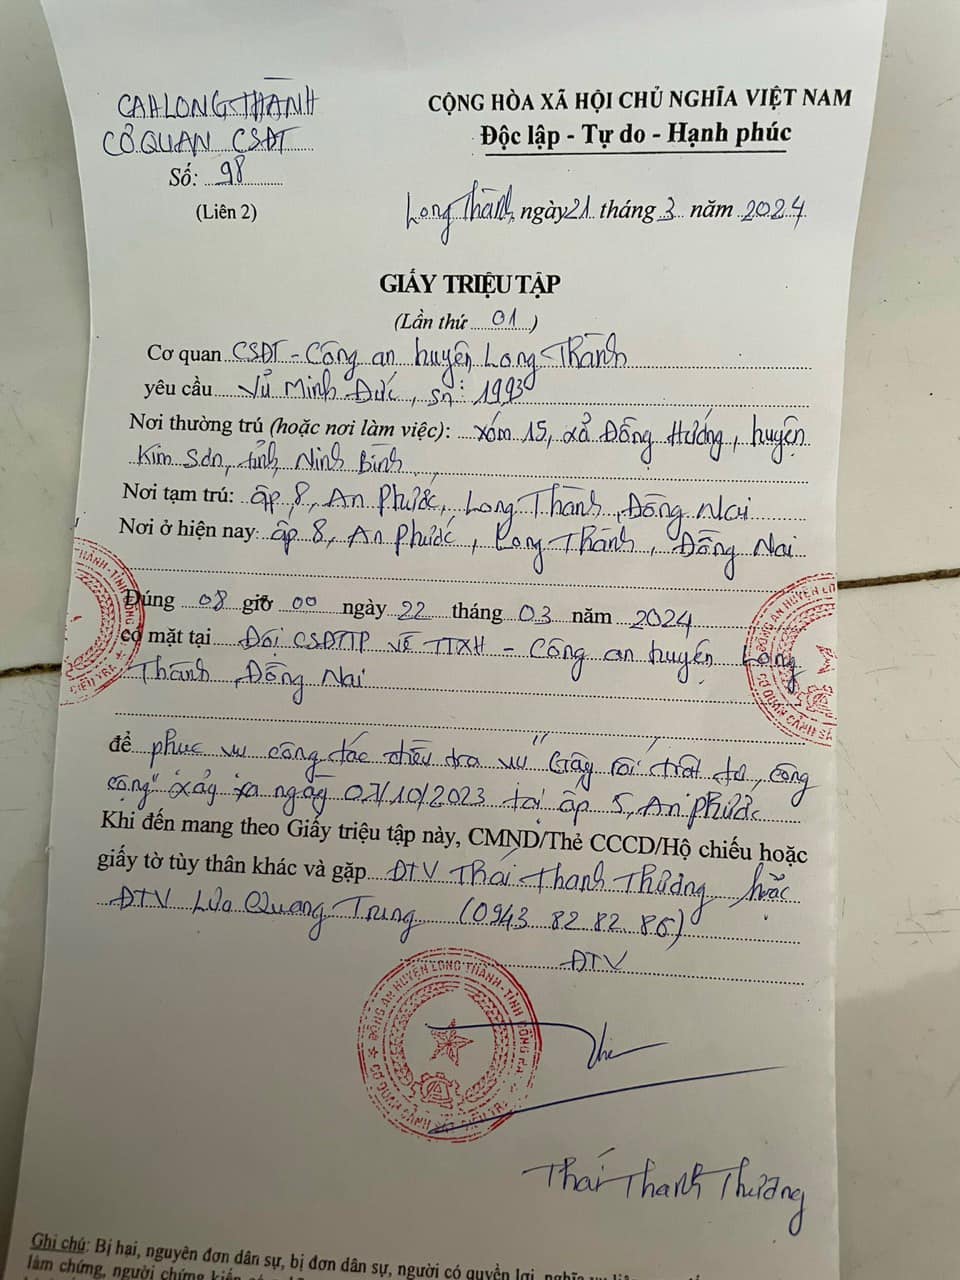 CAH LONG THÀNH
CƠ QUAN CSĐT
Số: 98
(Liên 2)
CỘNG HÒA XÃ HỘI CHỦ NGHĨA VIỆT NAM
Độc lập - Tự do - Hạnh phúc
Long Thành, ngày 21 tháng 3 năm 2024
GIẤY TRIỆU TẬP
(Lần thứ 01)
Cơ quan CSĐT - Công an huyện Long Thành
yêu cầu Vũ Minh Đức, sn: 1993
Nơi thường trú (hoặc nơi làm việc): xóm 15, xã Đồng Hướng, huyện
Kim Sơn, tỉnh Ninh Bình,
Nơi tạm trú: ấp 8, An Phước, Long Thành, Đồng Nai
Nơi ở hiện nay: ấp 8, An Phước, Long Thành, Đồng Nai
Đúng 08 giờ 00 ngày 22 tháng 03 năm 2024
có mặt tại Đội CSĐTTP về TTXH - Công an huyện Long
Thành, Đồng Nai
để phục vụ công tác điều tra vụ "Gây rối trật tự công
cộng" xảy ra ngày 07/10/2023 tại ấp 5, An Phước
Khi đến mang theo Giấy triệu tập này, CMND/Thẻ CCCD/Hộ chiếu hoặc
giấy tờ tùy thân khác và gặp ĐTV Thái Thanh Thương hoặc
ĐTV Lưu Quang Trung (0943.82.82.86)
ĐTV
CÔNG AN HUYỆN LONG THÀNH - TỈNH ĐỒNG NAI
CƠ QUAN CẢNH SÁT ĐIỀU TRA
Thái Thanh Thương
Ghi chú: Bị hại, nguyên đơn dân sự, bị đơn dân sự, người có quyền lợi, nghĩa vụ
làm chứng, người chứng kiến